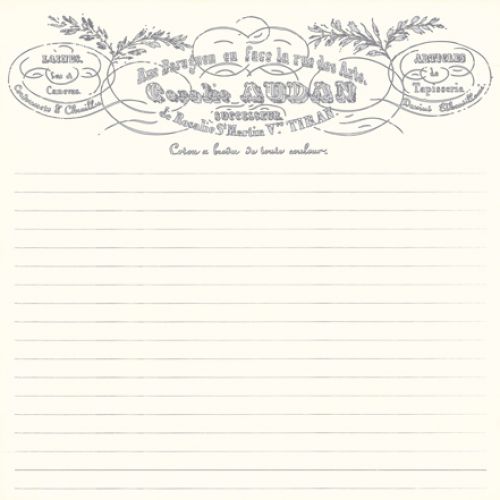 LAINES,
Soies et
Canevas.
Rue Baraguen en face la rue des Arts,
Rosalie AUDAN
SUCCESSEUR
de Rosalie St Martin Vve TIRAN
ARTICLES
de
Tapisserie.
Coton a broder de toute couleur.